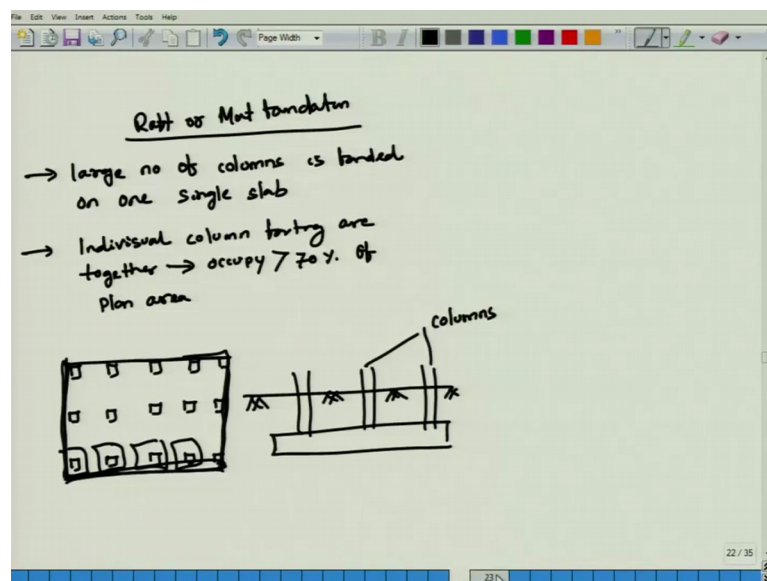 File Edit View Insert Actions Tools Help
Page Width
B I
Raft or Mat foundation
→ large no of columns is founded
on one single slab
→ Indivisual column footing are
together → occupy > 70 %. of
plan area
columns
22 / 35
23